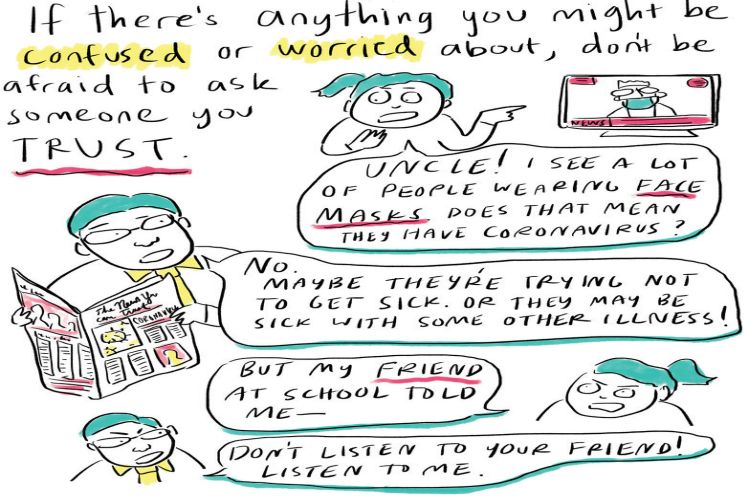 If there's anything you might be
confused or worried about, don't be
afraid to ask
someone you
TRUST.
NEWS
UNCLE! I SEE A LOT
OF PEOPLE WEARING FACE
MASKS DOES THAT MEAN
THEY HAVE CORONAVIRUS?
NO.
MAYBE THEY'RE TRYING NOT
TO GET SICK. OR THEY MAY BE
SICK WITH SOME OTHER ILLNESS!
The News You
can trust
CORONAVIRUS
BUT MY FRIEND
AT SCHOOL TOLD
ME—
DON'T LISTEN TO YOUR FRIEND!
LISTEN TO ME.